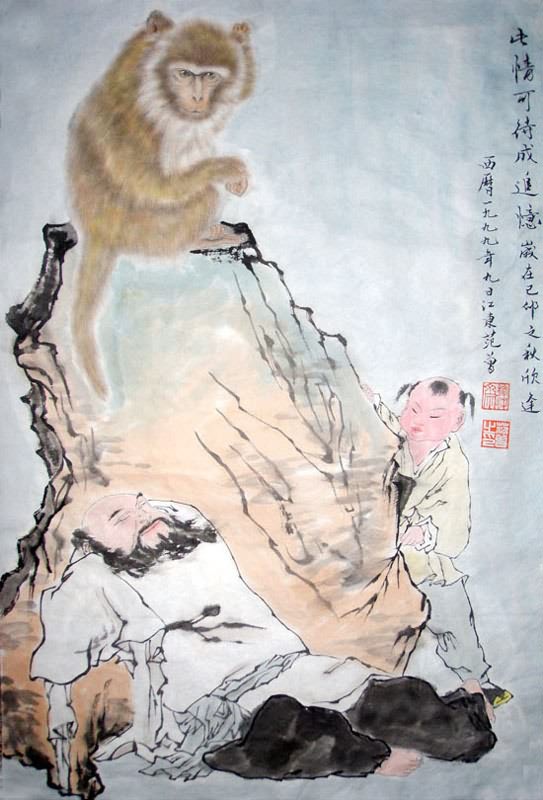 此情可待成追憶 歲在己卯之秋欣逢
西曆一九九九年九日江東范曾